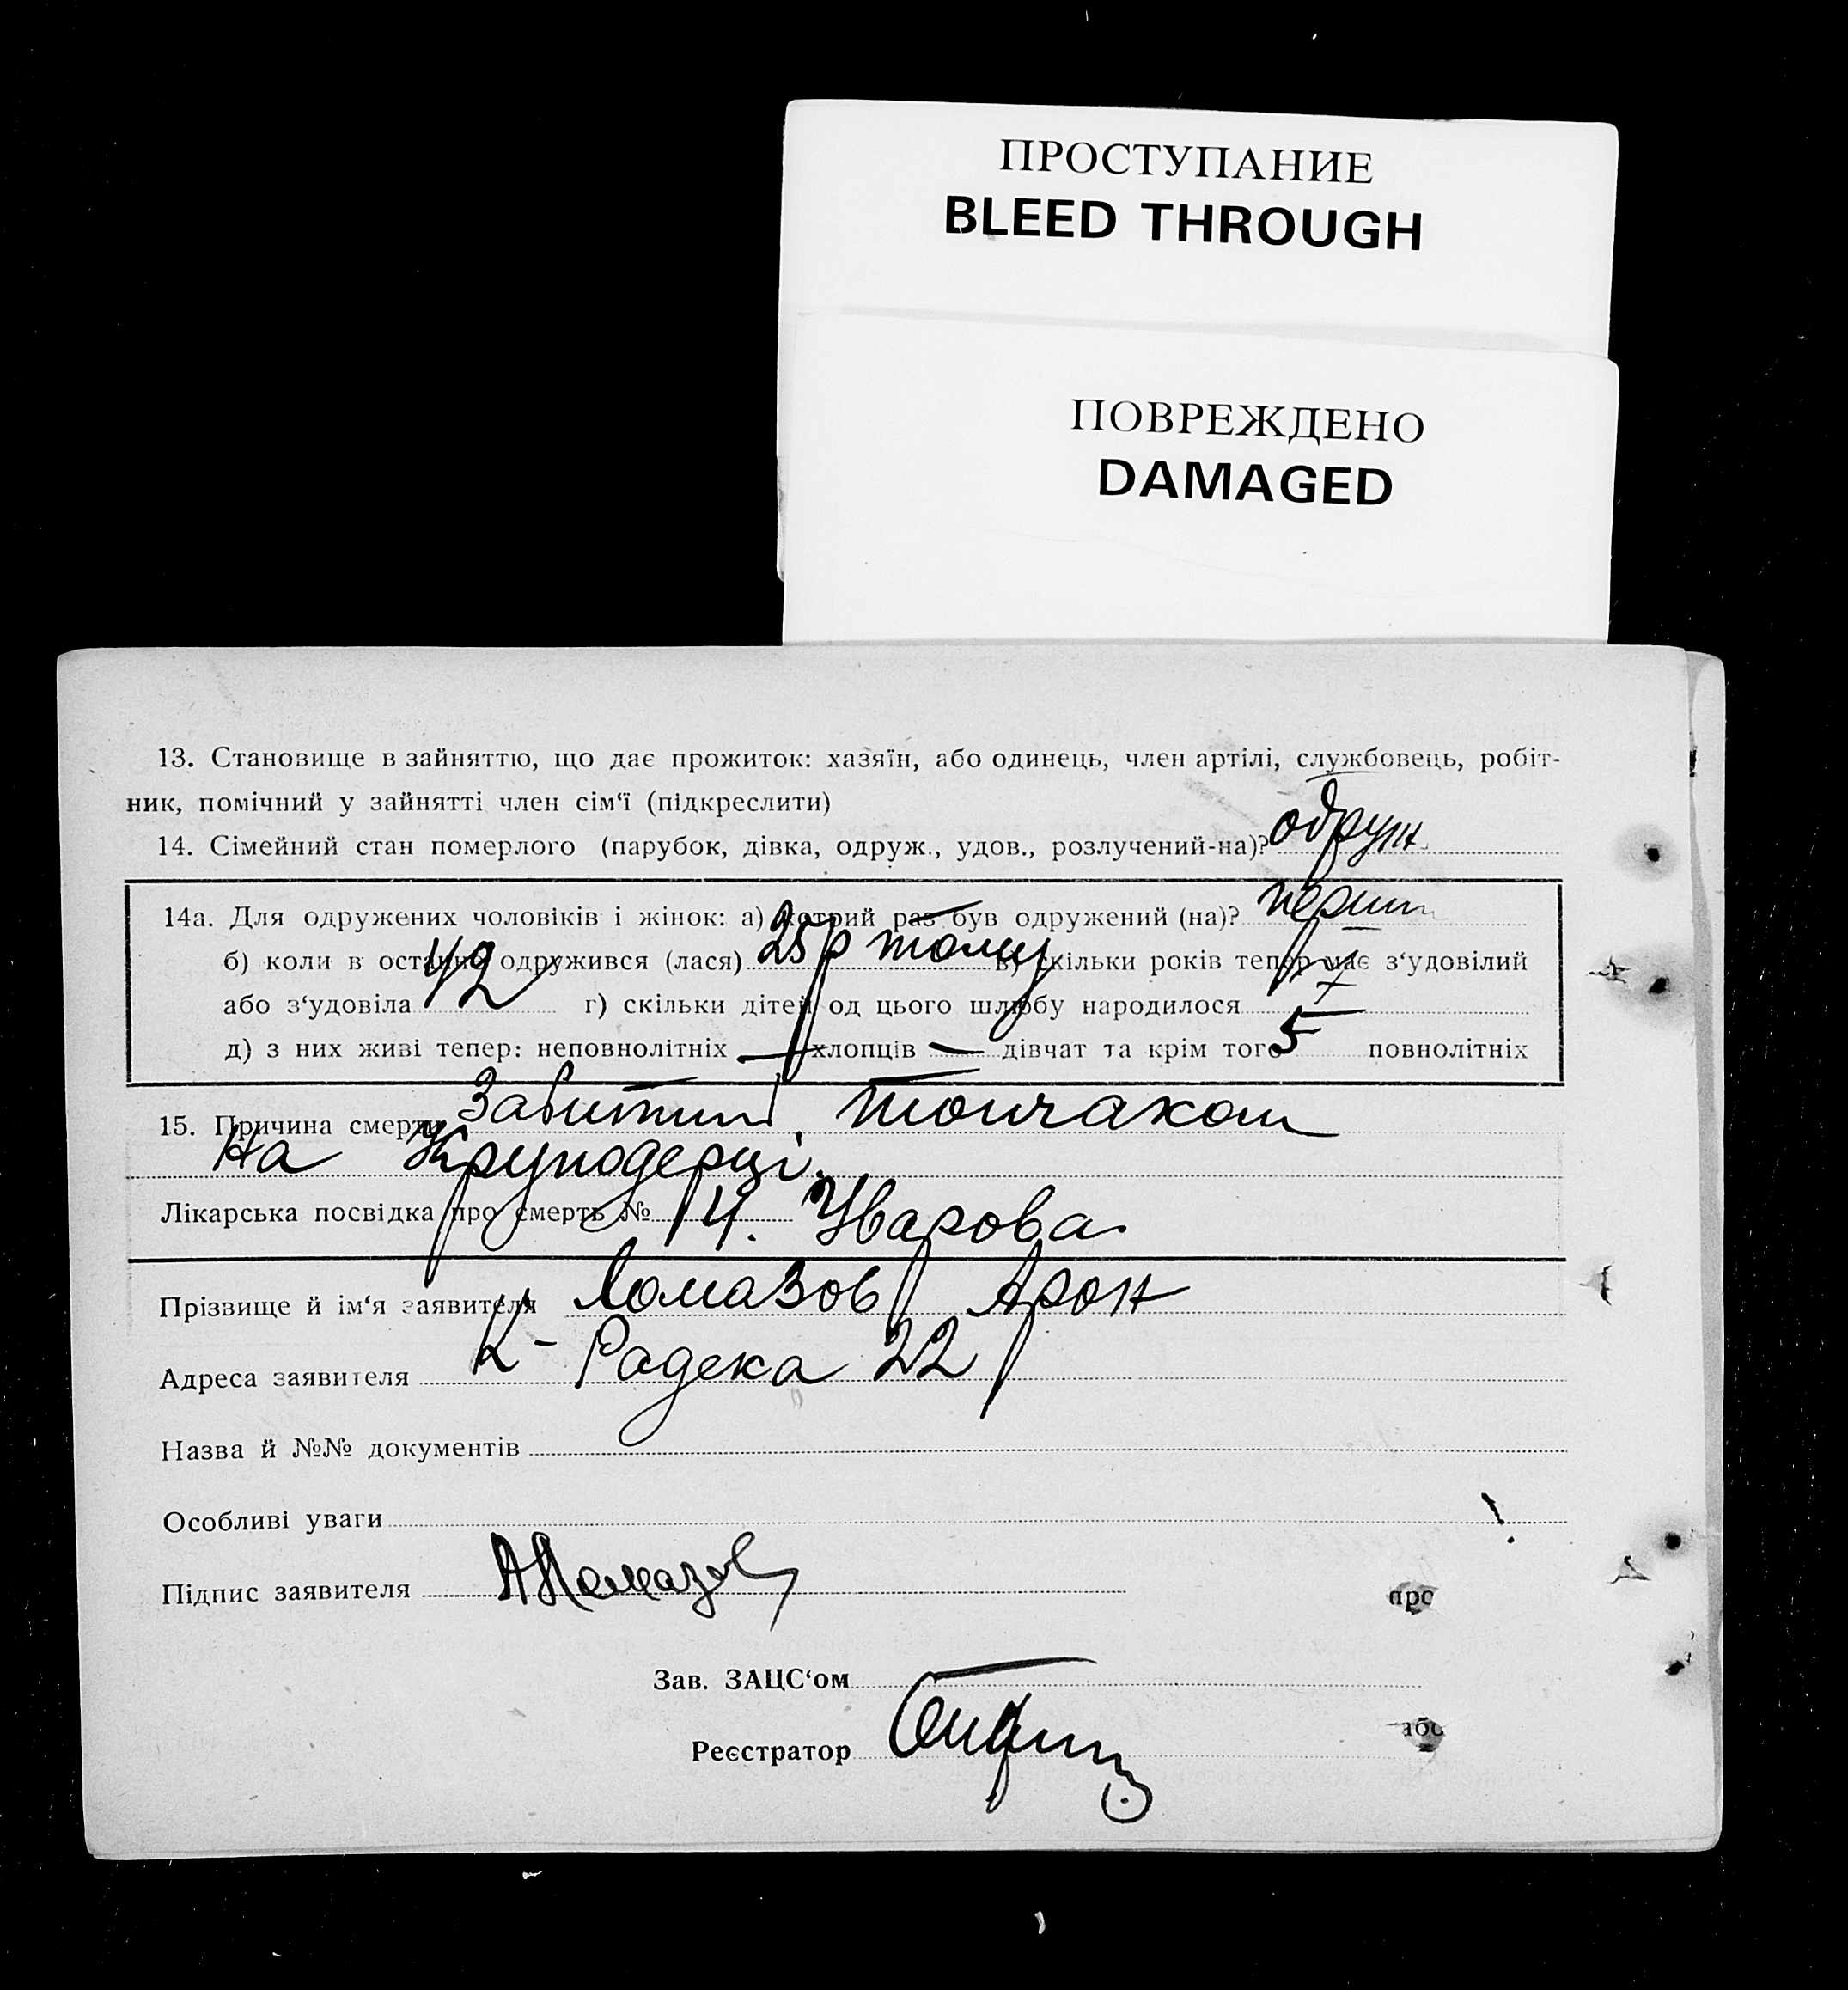 ПРОСТУПАНИЕ
BLEED THROUGH
ПОВРЕЖДЕНО
DAMAGED
13. Становище в зайняттю, що дає прожиток: хазяїн, або одинець, член артілі, службовець, робіт-
ник, помічний у зайнятті член сім‘ї (підкреслити)
14. Сімейний стан померлого (парубок, дівка, одруж., удов., розлучений-на)? одруж.
14а. Для одружених чоловіків і жінок: а) котрий раз був одружений (на)? перш
б) коли в останнє одружився (лася) 25 р тому в) скільки років тепер має з‘удовілий
або з‘удовіла 42 г) скільки дітей од цього шлюбу народилося 7
д) з них живі тепер: неповнолітніх — хлопців — дівчат та крім того 5 повнолітніх
15. Причина смерти Забитий, топчаком
на Круподерці.
Лікарська посвідка про смерть № 14. Уварова
Прізвище й ім‘я заявителя Ломазов Арон
Адреса заявителя К- Радека 22
Назва й №№ документів
Особливі уваги
Підпис заявителя АЛомазов
про
Зав. ЗАЦС‘ом
або
Реєстратор